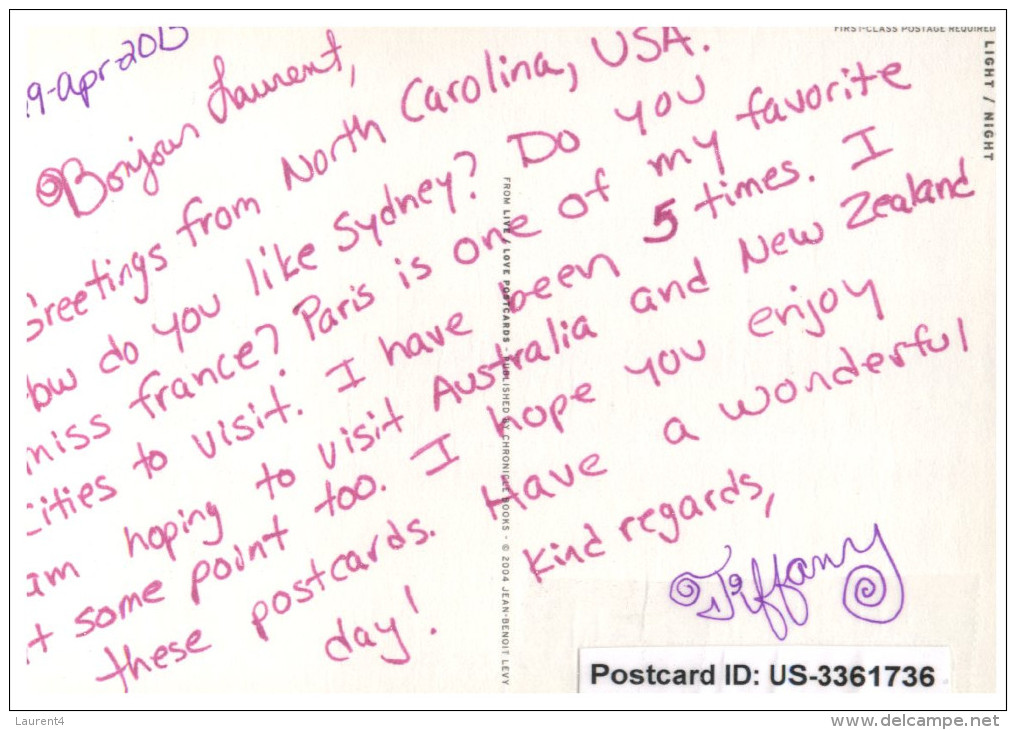 9-Apr-2013
Bonjour Laurent,
Greetings from North Carolina, USA.
How do you like Sydney? Do you
miss france? Paris is one of my favorite
cities to visit. I have been 5 times. I
am hoping to visit Australia and New Zealand
at some point too. I hope you enjoy
these postcards. Have a wonderful
day!
Kind regards,
Tiffany
FIRST-CLASS POSTAGE REQUIRED
LIGHT / NIGHT
FROM LIVE / LOVE POSTCARDS · PUBLISHED BY CHRONICLE BOOKS · © 2004 JEAN-BENOIT LEVY
Postcard ID: US-3361736
Laurent4
www.delcampe.net